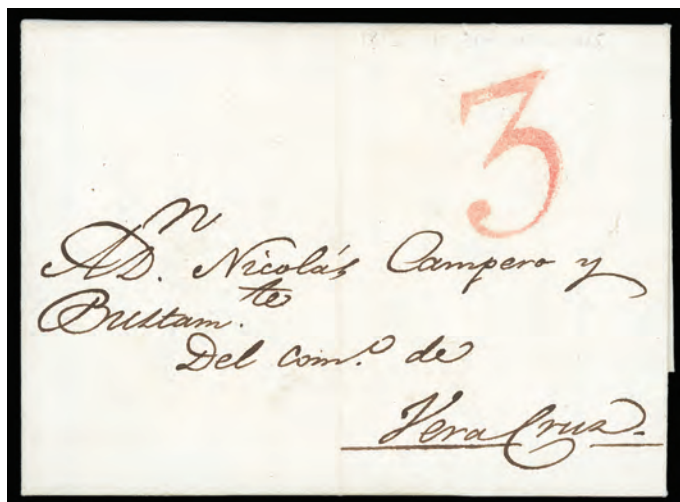 3
A D.n Nicolás Campero y
Bustam.te
Del com.o de
Vera Cruz.